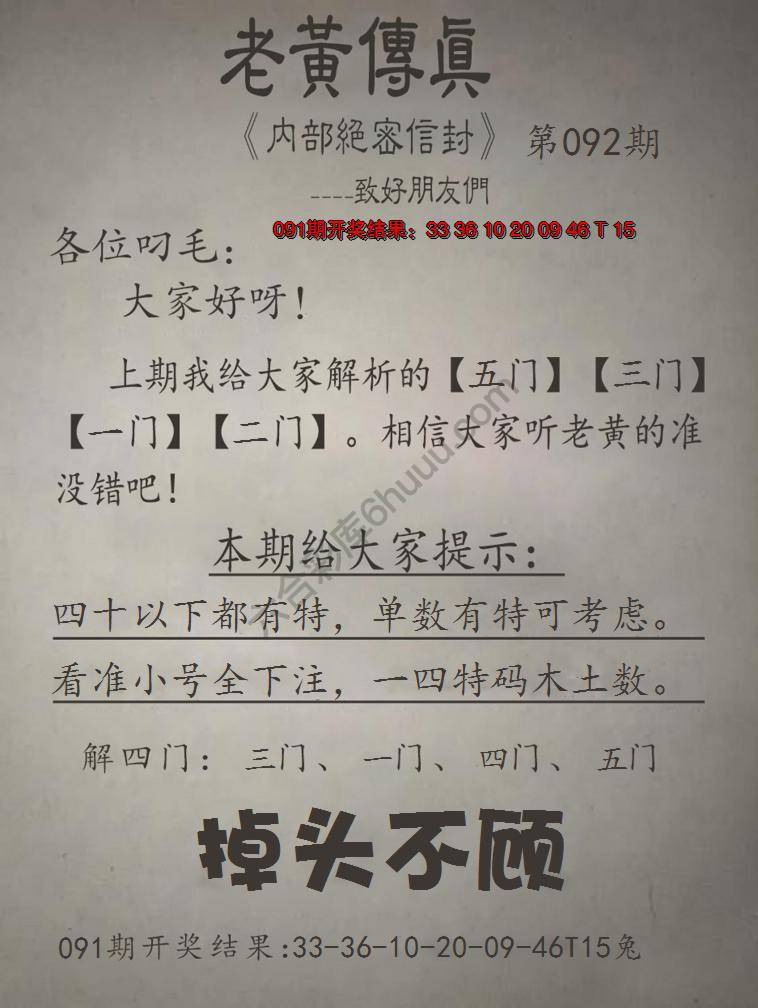 老黃傳眞
《内部絕密信封》 第092期
----致好朋友們
091期开奖结果：33 36 10 20 09 46 T 15
各位叼毛：
大家好呀！
上期我给大家解析的【五门】【三门】
【一门】【二门】。相信大家听老黄的准
没错吧！
六合彩库6huuu.com
本期给大家提示：
四十以下都有特，单数有特可考虑。
看准小号全下注，一四特码木土数。
解四门：三门、一门、四门、五门
掉头不顾
091期开奖结果:33-36-10-20-09-46T15兔